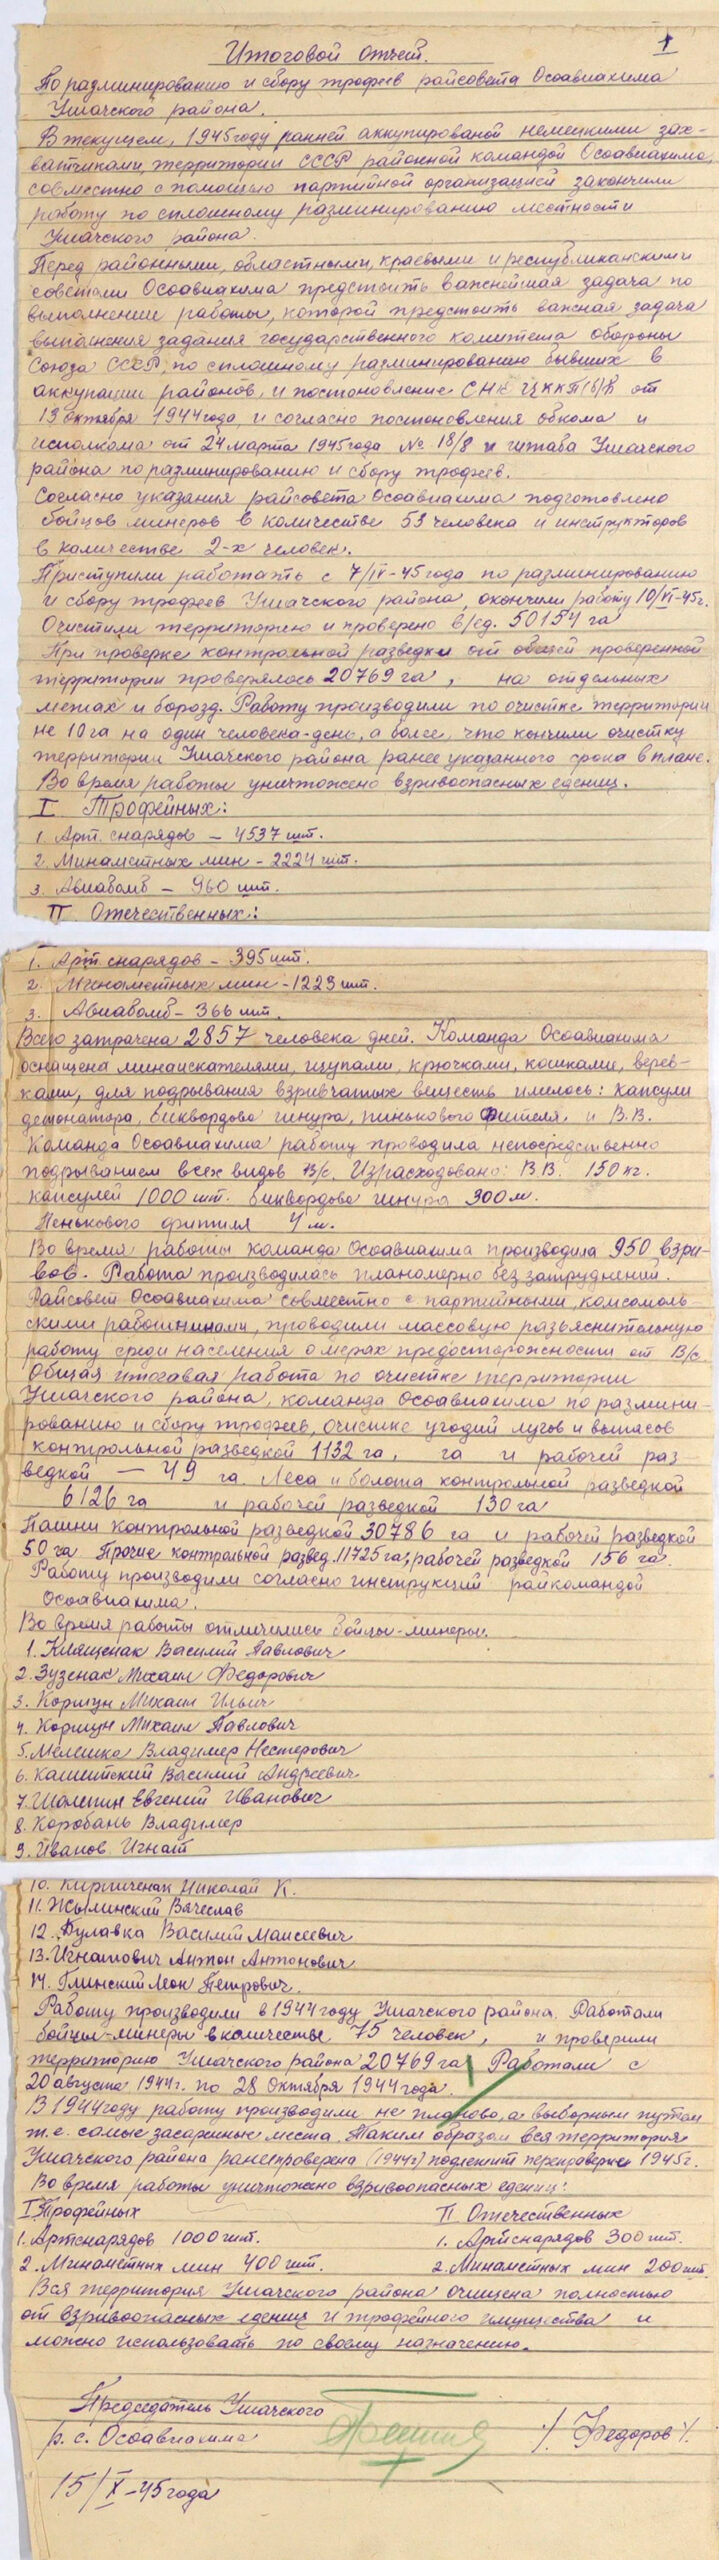 Итоговой отчет. 1
По разминированию и сбору трофеев райсовета Осоавиахима
Ушачского района.
В текущем, 1945 году ранней аккупированой немецкими зах-
ватчиками, территории СССР районной командой Осоавиахима,
совместно с помощью партийной организацией закончили
работу по сплошному разминированию местности
Ушачского района.
Перед районными, областными, краевыми и республиканскими
советами Осоавиахима предстоить важнейшая задача по
выполнении работы, которой предстоить важная задача
выполнения задания государственного комитета обороны
Союза СССР, по сплошному разминированию бывших в
аккупации районов, и постановление СНК ЦККП(б)Б от
13 октября 1944 года, и согласно постоновления обкома и
исполкома от 24 марта 1945 года № 18/8 и штаба Ушачского
района по разминированию и сбору трофеев.
Согласно указания райсовета Осоавиахима подготовлено
бойцов минеров в количестве 53 человека и инструкторов
в количестве 2-х человек.
Приступили работать с 7/IV-45 года по разминированию
и сбору трофеев Ушачского района, окончили работу 10/VI-45г.
Очистили территорию и проверено в/ед. 50154 га
При проверке контрольной разведки от общей проверенной
территории проверялось 20769 га, на отдельных
межах и борозд. Работу производили по очистке территории
не 10 га на один человека-день, а более, что кончили очистку
территории Ушачского района ранее указанного срока в плане.
Во время работы уничтожено взривоопасных едениц.
I Трофейных:
1. Арт. снарядов – 4537 шт.
2. Минаметных мин – 2224 шт.
3. Авиабомб – 960 шт.
II Отечественных:
1. Арт. снарядов – 395 шт.
2. Минаметных мин – 1223 шт.
3. Авиабомб – 366 шт.
Всего затрачена 2857 человека дней. Команда Осоавиахима
оснащена минаискателями, щупами, крючками, кошками, верев-
ками, для подрывания взривчатых веществ имелось: капсули
детонатора, биквордова шнура, пинькового фителя, и В.В.
Команда Осоавиахима работу проводила непосредственно
подрыванием всех видов В/с. Израсходовано: В.В. 150 кг.
капсулей 1000 шт. биквордова шнура 300 м.
Пенькового фитиля 4 м.
Во время работы команда Осоавиахима производила 950 взри-
вов. Работа производилась планомерно без затруднений.
Райсовет Осоавиахима совместно с партийными, комсомоль-
скими работниками, проводили массовую разьяснительную
работу среди населения о мерах предосторожности от В/с.
Общая итогавая работа по очистке территории
Ушачского района, команда Осоавиахима по размини-
рованию и сбору трофеев, очистке угодий лугов и выпасов
контрольной разведкой 1132 га, га и рабочей раз-
ведкой — 49 га. Леса и болота контрольной разведкой
6126 га и рабочей разведкой 130 га
Пашни контрольной разведкой 30786 га и рабочей разведкой
50 га Прочие контральной развед. 11725 га, рабочей разведкой 156 га.
Работу производили согласно инструкций райкомандой
Осоавиахима.
Во время работы отличились бойцы-минеры.
1. Клященак Василий Павлович
2. Зузенак Михаил Федорович
3. Коршун Михаил Ильич
4. Коршун Михаил Павлович
5. Мелешко Владимер Нестерович
6. Кашитский Василий Андреевич
7. Шалепин Евгений Иванович
8. Коробань Владимер
9. Иванов Игнат
10. Кирпиченак Николай К.
11. Жылинский Вячеслав
12. Булавка Василий Маисеевич
13. Игнатович Антон Антонович
14. Глинский Леон Петрович.
Работу производили в 1944 году Ушачского района. Работали
бойцы-минеры в количестве 75 человек, и проверили
территорию Ушачского района 20769 га. Работали с
20 августа 1944 г. по 28 Октября 1944 года.
В 1944 году работу производили не планово, а выборным путем
т.е. самые засаренные места. Таким образом вся территория
Ушачского района ранепроверена (1944г) подлежит перепроверке 1945г.
Во время работы уничтожено взривоопасных едениц:
I Трофейных II Отечественных
1. Артснарядов 1000 шт. 1. Артснарядов 300 шт.
2. Минаметных мин 400 шт. 2. Минаметных мин 200 шт.
Вся территория Ушачского района очищена полностью
от взривоопасных едениц и трофейного имущества и
можно использовать по своему назначению.
Председатель Ушачского
р.с. Осоавиахима /Федоров/.
15/X-45 года